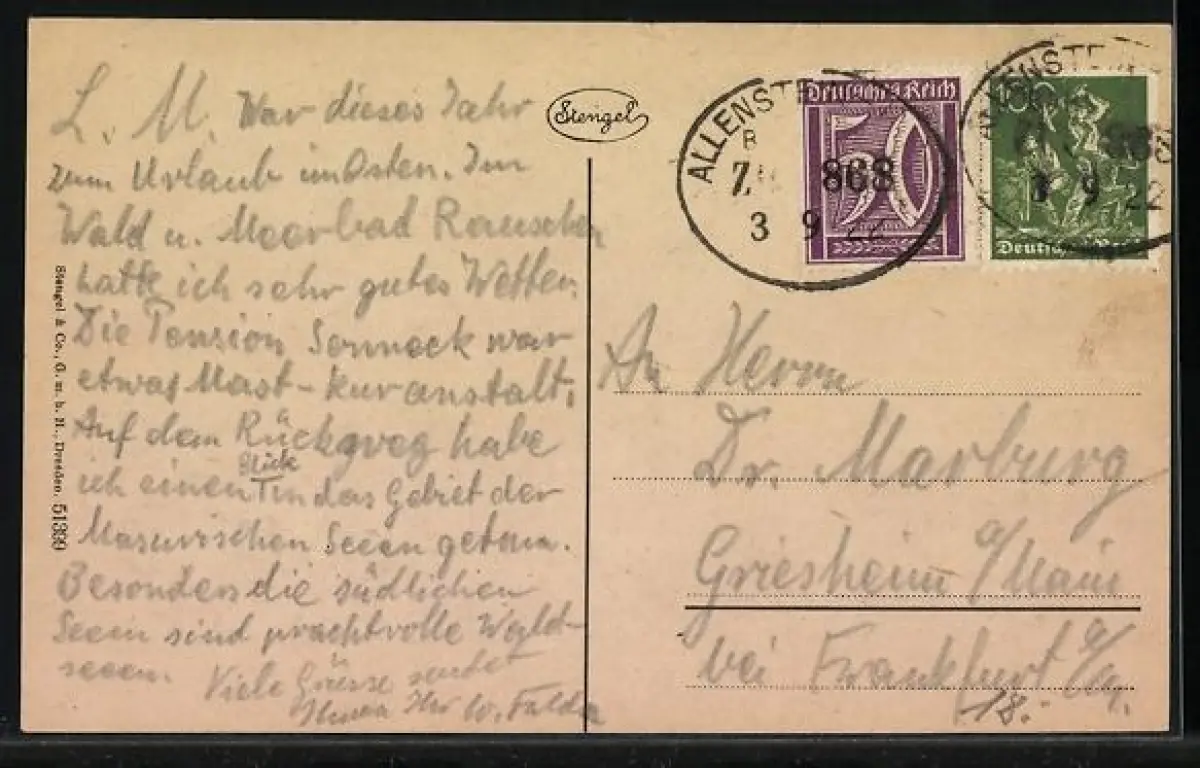 L. M. War dieses Jahr
zum Urlaub im Osten. Im
Wald u. Moorbad Rauschen
hatte ich sehr gutes Wetter.
Die Pension Sonneck war
etwas Mast-kuranstalt.
Auf dem Rückweg habe
ich einen Blick in das Gebiet der
Masurischen Seeen getan.
Besonders die südlichen
Seeen sind prachtvolle Wald-
seeen. Viele Grüsse sendet
Ihnen Ihr W.
Stengel
Stengel & Co., G. m. b. H., Dresden. 51399
ALLENSTEIN
B
Z 868
3 9 22
Deutsches Reich
50
ALLENSTEIN
868
3 9 22
100
Deutsches Reich
An Herrn
Dr. Marburg
Griesheim a/Main
bei Frankfurt a/M.
18.